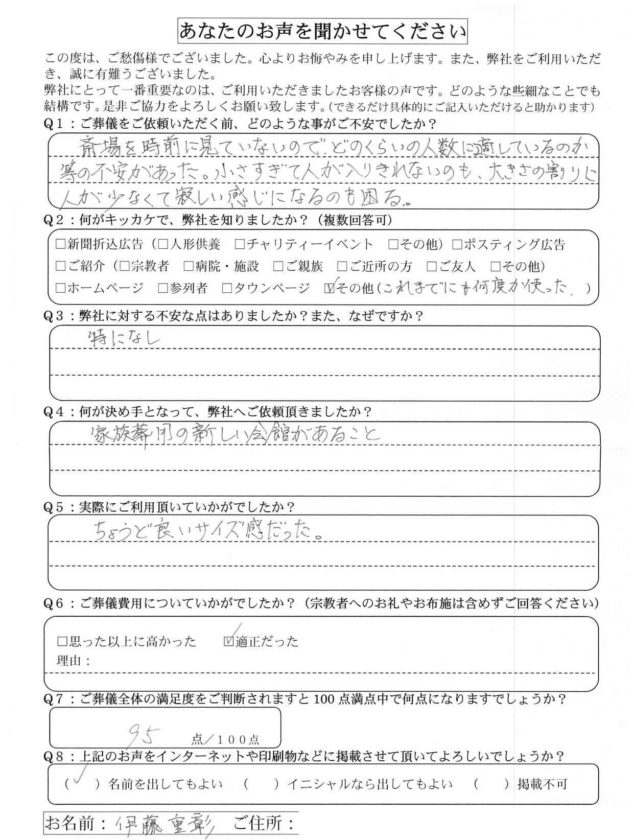 あなたのお声を聞かせてください
この度は、ご愁傷様でございました。心よりお悔やみを申し上げます。また、弊社をご利用いただ
き、誠に有難うございました。
弊社にとって一番重要なのは、ご利用いただきましたお客様の声です。どのような些細なことでも
結構です。是非ご協力をよろしくお願い致します。(できるだけ具体的にご記入いただけると助かります)
Q1：ご葬儀をご依頼いただく前、どのような事がご不安でしたか？
斎場を時前に見ていないので、どのくらいの人数に適しているのか
等の不安があった。小さすぎて人が入りきれないのも、大きさの割りに
人が少なくて寂しい感じになるのも困る。
Q2：何がキッカケで、弊社を知りましたか？（複数回答可）
□新聞折込広告（□人形供養　□チャリティーイベント　□その他）□ポスティング広告
□ご紹介（□宗教者　□病院・施設　□ご親族　□ご近所の方　□ご友人　□その他）
□ホームページ　□参列者　□タウンページ　☑その他(これまでにも何度か使った.　)
Q3：弊社に対する不安な点はありましたか？また、なぜですか？
特になし
Q4：何が決め手となって、弊社へご依頼頂きましたか？
家族葬用の新しい会館があること
Q5：実際にご利用頂いていかがでしたか？
ちょうど良いサイズ感だった。
Q6：ご葬儀費用についていかがでしたか？（宗教者へのお礼やお布施は含めずご回答ください）
□思った以上に高かった　☑適正だった
理由：
Q7：ご葬儀全体の満足度をご判断されますと100点満点中で何点になりますでしょうか？
95　点/100点
Q8：上記のお声をインターネットや印刷物などに掲載させて頂いてよろしいでしょうか？
（✓）名前を出してもよい　（　）イニシャルなら出してもよい　（　）掲載不可
お名前：伊藤重彰　ご住所：